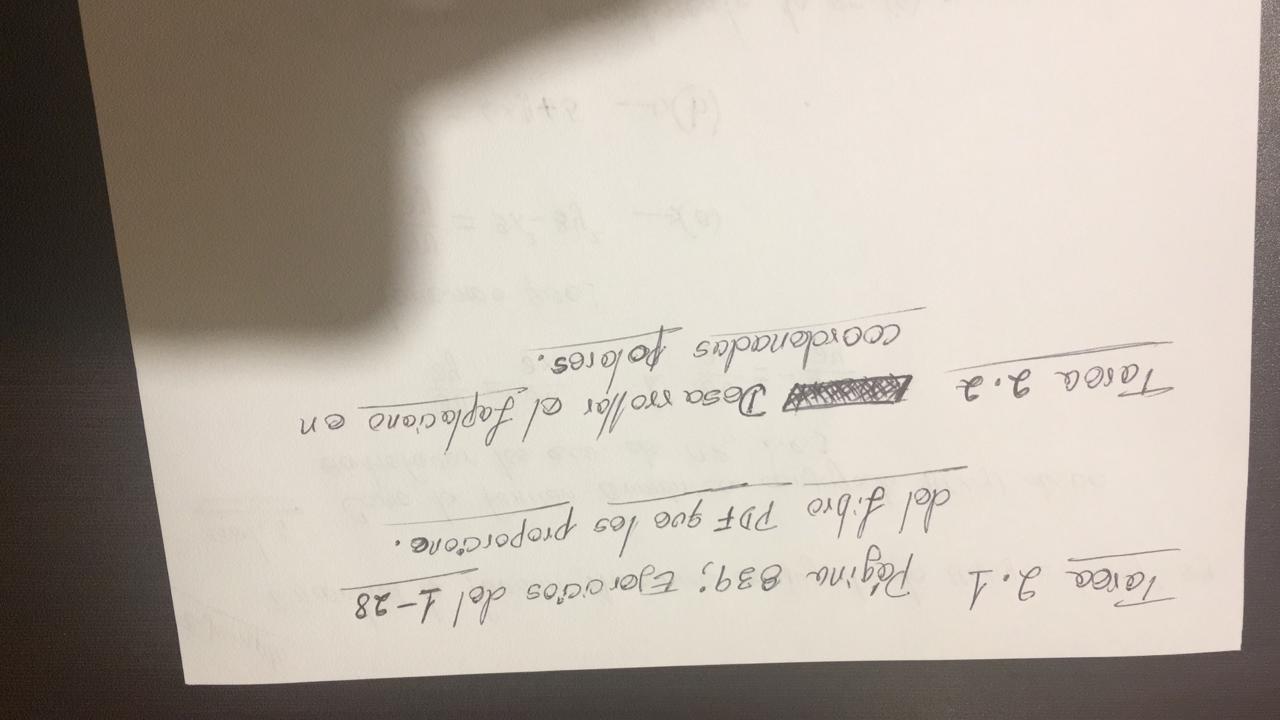 Tarea 2.1 Página 839; Ejercicios del 1-28
del libro PDF que les proporcione.
Tarea 2.2 Desarrollar el Laplaciano en
coordenadas polares.